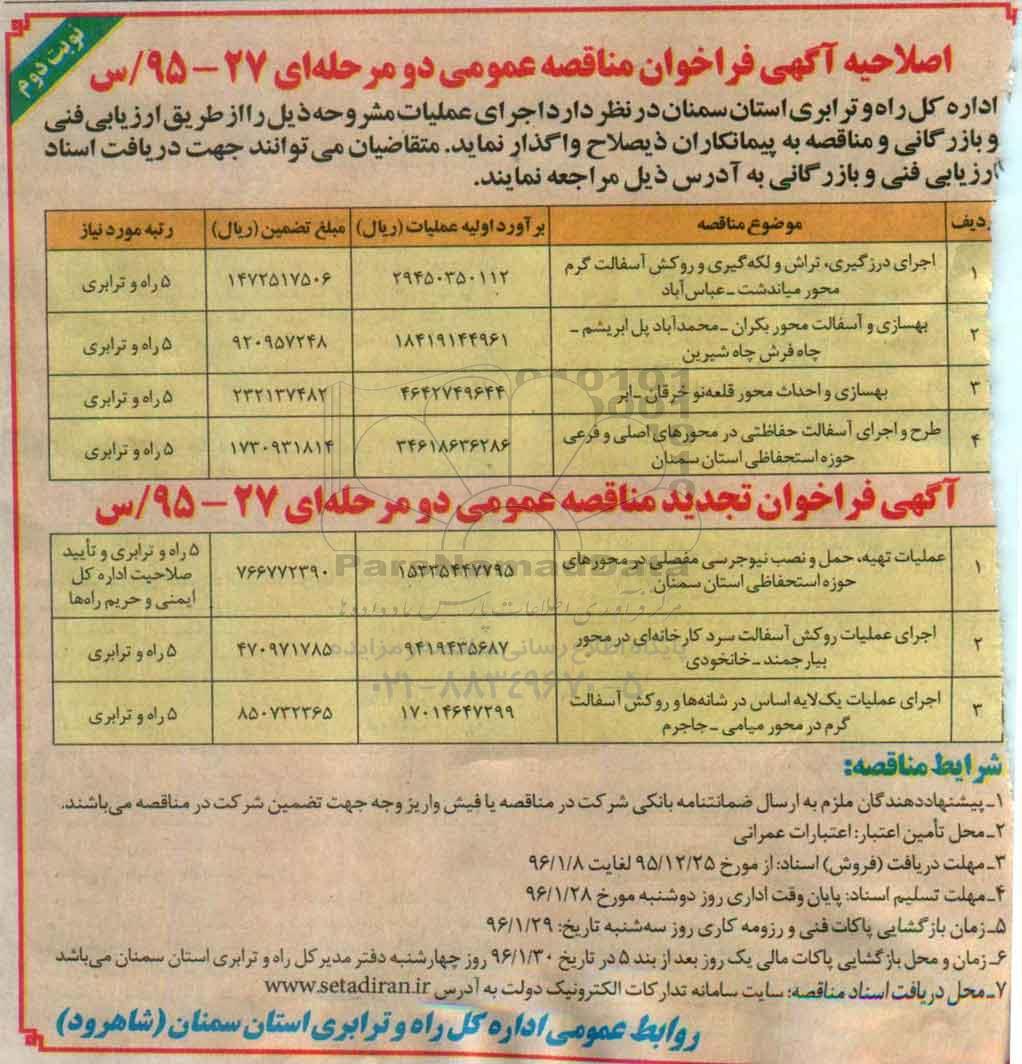 نوبت دوم
اصلاحیه آگهی فراخوان مناقصه عمومی دو مرحله‌ای ۲۷ - ۹۵/س
اداره کل راه و ترابری استان سمنان در نظر دارد اجرای عملیات مشروحه ذیل را از طریق ارزیابی فنی
و بازرگانی و مناقصه به پیمانکاران ذیصلاح واگذار نماید. متقاضیان می‌توانند جهت دریافت اسناد
ارزیابی فنی و بازرگانی به آدرس ذیل مراجعه نمایند.
ردیف موضوع مناقصه برآورد اولیه عملیات (ریال) مبلغ تضمین (ریال) رتبه مورد نیاز
۱ اجرای درزگیری، تراش و لکه‌گیری و روکش آسفالت گرم ۲۹۴۵۰۳۵۰۱۱۲ ۱۴۷۲۵۱۷۵۰۶ ۵ راه و ترابری
محور میاندشت ـ عباس‌آباد
۲ بهسازی و آسفالت محور بکران ـ محمدآباد پل ابریشم ـ ۱۸۴۱۹۱۴۴۹۶۱ ۹۲۰۹۵۷۲۴۸ ۵ راه و ترابری
چاه فرش چاه شیرین
۳ بهسازی و احداث محور قلعه‌نو خرقان ـ ابر ۴۶۴۲۷۴۹۶۴۴ ۲۳۲۱۳۷۴۸۲ ۵ راه و ترابری
۴ طرح و اجرای آسفالت حفاظتی در محورهای اصلی و فرعی ۳۴۶۱۸۶۳۶۲۸۶ ۱۷۳۰۹۳۱۸۱۴ ۵ راه و ترابری
حوزه استحفاظی استان سمنان
آگهی فراخوان تجدید مناقصه عمومی دو مرحله‌ای ۲۷ - ۹۵/س
۱ عملیات تهیه، حمل و نصب نیوجرسی مفصلی در محورهای ۱۵۳۳۵۴۴۷۷۹۵ ۷۶۶۷۷۲۳۹۰ ۵ راه و ترابری و تأیید
حوزه استحفاظی استان سمنان صلاحیت اداره کل
ایمنی و حریم راه‌ها
۲ اجرای عملیات روکش آسفالت سرد کارخانه‌ای در محور ۹۴۱۹۴۳۵۶۸۷ ۴۷۰۹۷۱۷۸۵ ۵ راه و ترابری
بیارجمند ـ خانخودی
۳ اجرای عملیات یک‌لایه اساس در شانه‌ها و روکش آسفالت ۱۷۰۱۴۶۴۷۲۹۹ ۸۵۰۷۳۲۳۶۵ ۵ راه و ترابری
گرم در محور میامی ـ جاجرم
ParsNamadData
مرکز فرآوری اطلاعات پارس نماد داده‌ها
پایگاه اطلاع رسانی مناقصه و مزایده
۰۲۱-۸۸۳۴۹۶۷۰-۵
شرایط مناقصه:
۱ـ پیشنهاددهندگان ملزم به ارسال ضمانتنامه بانکی شرکت در مناقصه یا فیش واریز وجه جهت تضمین شرکت در مناقصه می‌باشند.
۲ـ محل تأمین اعتبار: اعتبارات عمرانی
۳ـ مهلت دریافت (فروش) اسناد: از مورخ ۹۵/۱۲/۲۵ لغایت ۹۶/۱/۸
۴ـ مهلت تسلیم اسناد: پایان وقت اداری روز دوشنبه مورخ ۹۶/۱/۲۸
۵ـ زمان بازگشایی پاکات فنی و رزومه کاری روز سه‌شنبه تاریخ: ۹۶/۱/۲۹
۶ـ زمان و محل بازگشایی پاکات مالی یک روز بعد از بند ۵ در تاریخ ۹۶/۱/۳۰ روز چهارشنبه دفتر مدیر کل راه و ترابری استان سمنان می‌باشد
۷ـ محل دریافت اسناد مناقصه: سایت سامانه تدارکات الکترونیک دولت به آدرس www.setadiran.ir
روابط عمومی اداره کل راه و ترابری استان سمنان (شاهرود)